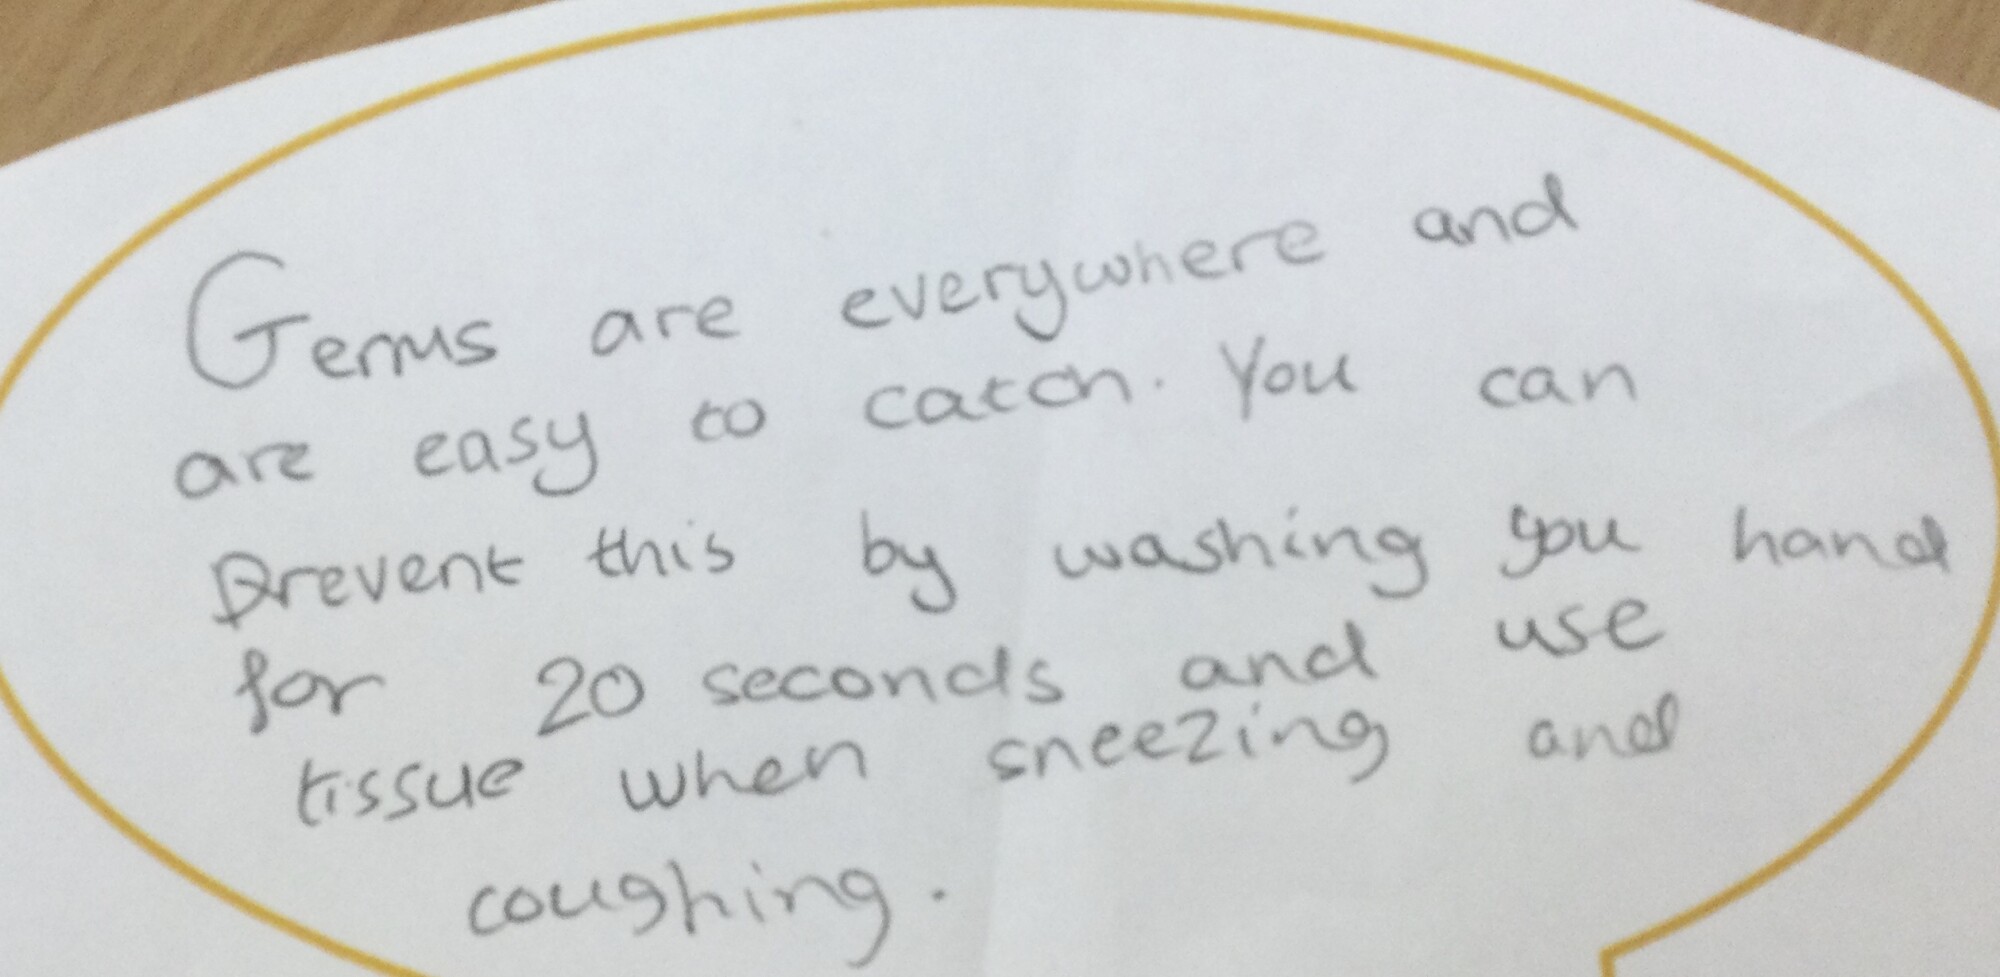 Germs are everywhere and
are easy to catch. You can
prevent this by washing you hand
for 20 seconds and use
tissue when sneezing and
coughing.